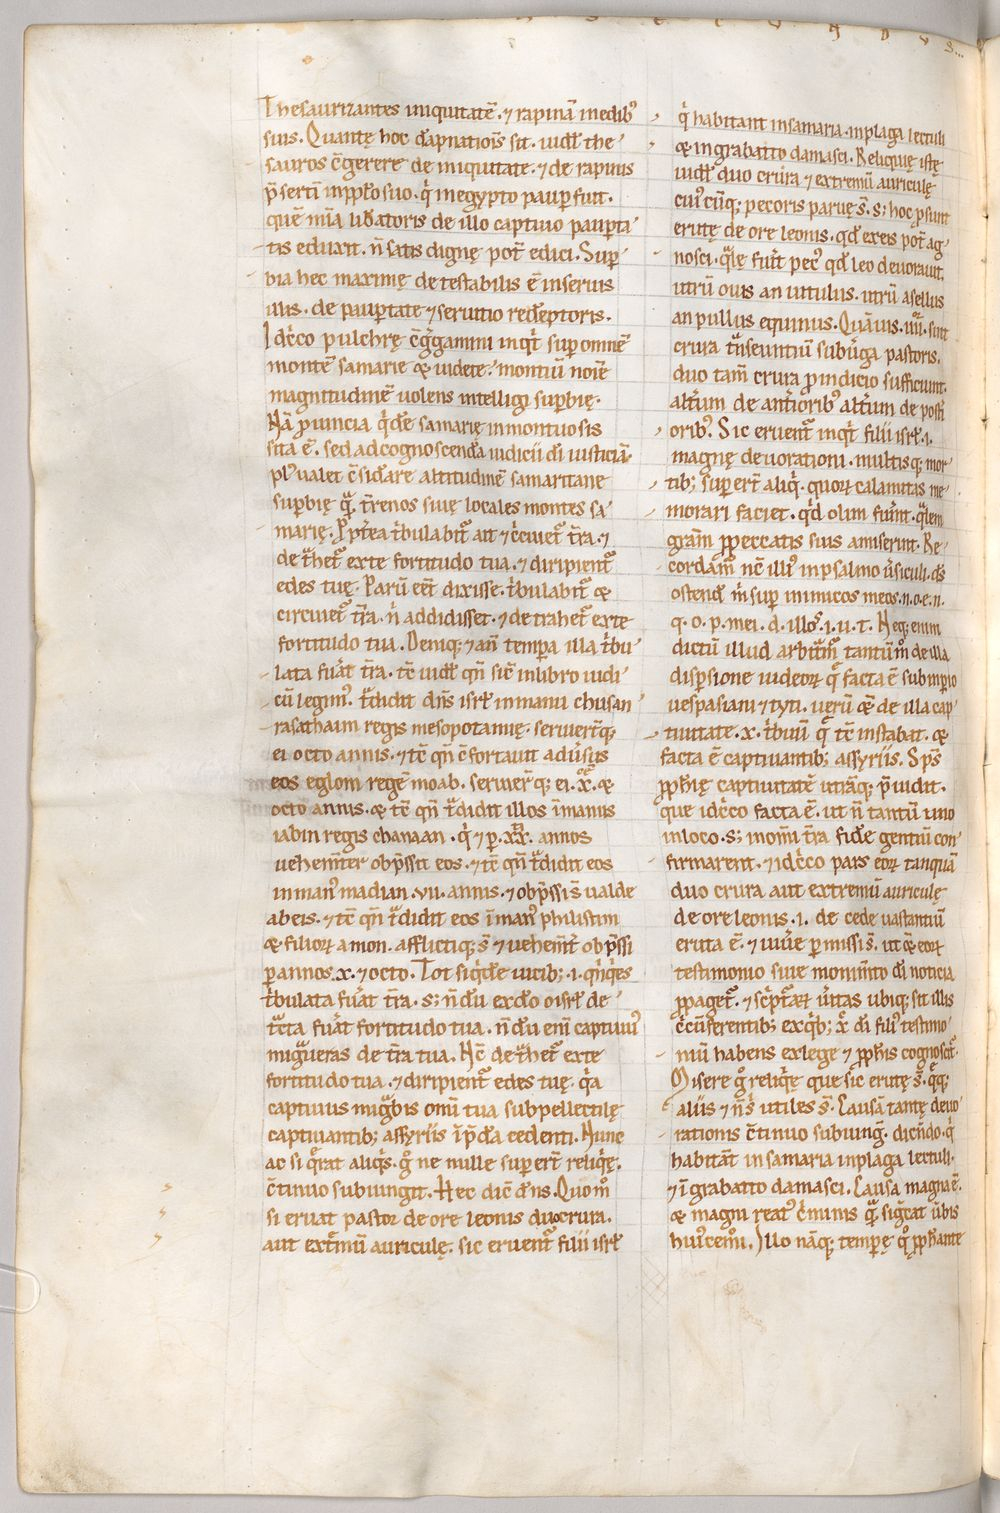 Thesaurizantes iniquitatē. ⁊ rapinā in edib᷒
suis. Quantę hoc dāpnatiōis sit. uid̄t the
sauros c̄gerere de iniquitate. ⁊ de rapinis
p̄sertī in pp̄lo suo. q̇ in egypto paup fuit.
quē mīa lib̄atoris de illo captiuo paupta
tis eduxit. n̄ satis dignę pot̄ edici. Sup
bia hec maximę detestabilis ē in seruis
illis. de paupertate ⁊ seruitio redēptoris.
Idc̄co pulchrę c̄g̊gamini inqt̄ sup omnē
montē samarie & uidete. montiū noīe
magnitudinē uolens intelligi supbię.
Nā prouincia q̇dē samarię in montuosis
sita ē. sed ad cognoscendā iudicii dī iusticiā
pl᷒ ualet c̄sid̄are altitudinē samaritane
supbię quā t̄renos suię locales montes sa
marię. Ppt̄ea t̄bulabit̄ ait ⁊ c̄cuiet̄ t̄ra. ⁊
det̄het̄ ex te fortitudo tua. ⁊ diripient̄
edes tuę. Parū eēt dixisse. t̄bulabit̄ &
circuiet̄ t̄ra. n̄ addidisset. ⁊ detrahet̄ ex te
fortitudo tua. Deniq; ⁊ an̄ tempa illa t̄bu
lata fuāt t̄ra. tē uid̄t qn̄ sic̄ in libro iudi
cū legim᷒. t̄didit dn̄s isrl̄ in manu chusan
rasathaim regis mesopotamię. seruiert̄q;
ei octo annis. ⁊ tē qn̄ c̄fortauit aduersus
eos eglom regē moab. seruier̄q; ei. x. &
octo annis. & tē qn̄ t̄didit illos ī manus
iabin regis chanaan. q̇ ⁊ p. xx. annos
uehemt̄er obp̄ssit eos. ⁊ tē qn̄ t̄didit eos
in man᷒ madian. vii. annis. ⁊ obp̄ssi s̄ ualde
ab eis. ⁊ tē qn̄ t̄didit eos ī man᷒ philistiim
& filioꝝ amon. afflictiq; s̄ ⁊ uehem̄t obp̄ssi
p annos. x. ⁊ octo. Tot siq̇dē uicib; .i. qnq̇es
t̄bulata fuāt t̄ra. s; n̄dū ex dō o isrl̄ de
t̄cta fuāt fortitudo tua. n̄dū eni captiuus
mig̊ueras de t̄ra tua. Nc̄ det̄het̄ ex te
fortitudo tua. ⁊ diripient̄ edes tuę. q̇a
captiuus mig̊bis omī tua subpellectilę
captiuantib; assyriis ī p̄dā cedenti. Hunc
ac si q̄rat aliq̇s. g̊ ne nulle superer̄t reliq̇ę.
c̄tinuo subiungit. Hec dic̄ dn̄s. Quom̊
si eruat pastor de ore leonis duo crura.
aut ext̄mū auriculę. sic eruent̄ filii isrl̄
q̇ habitant in samaria. in plaga lectuli
& in grabatto damasci. Reliquię istę
uid̄t duo crura ⁊ extremū auriculę
cui᷒cūq; pecoris paruę s̄. s; hoc p̄sunt
erutę de ore leonis. qd̄ ex eis pot̄ ag
nosci. q̄lę fuit pec᷒ qd̄ leo deuorauit.
utrū ouis an uitulus. utrū asellus
an pullus equinus. Quāuis. iiii. sint
crura t̄nseuntiū sub ūga pastoris.
duo tam̄ crura p indicio sufficiunt.
alt̄um de ant̄iorib᷒ alt̄um de post̄
orib᷒. Sic eruent̄ inqt̄ filii isrl̄ .i.
magnę deuorationi. multisq; mor
tib; super̄t aliq̇. quoꝝ calamitas me
morari faciet. q̇d olim fuīt. q̄lem
grām p peccatis suis amiserint. Re
cordām̄ nc̄ illi᷒ in psalmo ūsiculi. dš
ostend̄ m̄ sup inimicos meos. n. o. e. n.
q. o. p. mei. d. illos̄. i. u. t. Neq; enim
dictū illud arbit̄m̄ tantūm̊ de illa
dispersione iudeoꝝ q̄ facta ē sub impio
uespasiani ⁊ tyti. uerū & de illa cap
tiuitate. x. t̄buū q̄ tē instabat. &
facta ē captiuantib; assyriis. Sp̄s
pp̄hię captiuitatē utrāq; p̄uidit.
que idc̄co facta ē. ut n̄ tantū uno
in loco. s; in om̄i t̄ra fidē gentiū con
firmarent. ⁊ idc̄co pars eoꝝ tanquā
duo crura aut extremū auriculę
de ore leonis .i. de cede uastantiū
eruta ē. ⁊ uiuē pmissi s̄. ut & eoꝝ
testimonio siue monim̄to dī noticia
ppaget̄. ⁊ sc̄pt̄aꝝ ūitas ubiq; sit illis
c̄cūferentib; ex q̇b; x̄ dī fili᷒ testimo
niū habens ex lege ⁊ pp̄his cognoscit̄.
Misere g̊ reliq̇ę que sic erutę s̄. q̄q;
aliis ⁊ n̄ s̄ utiles s̄. Causā tantę deuo
rationis c̄tinuo subiung̊. dicn̄do. q̇
habitāt in samaria in plaga lectuli.
⁊ ī grabatto damasci. Causa magna ē.
& magni reat᷒ c̄minis quā sigc̄at ūbis
hui᷒cem̊i. Illo nāq; tempę q̊ pp̄h ante